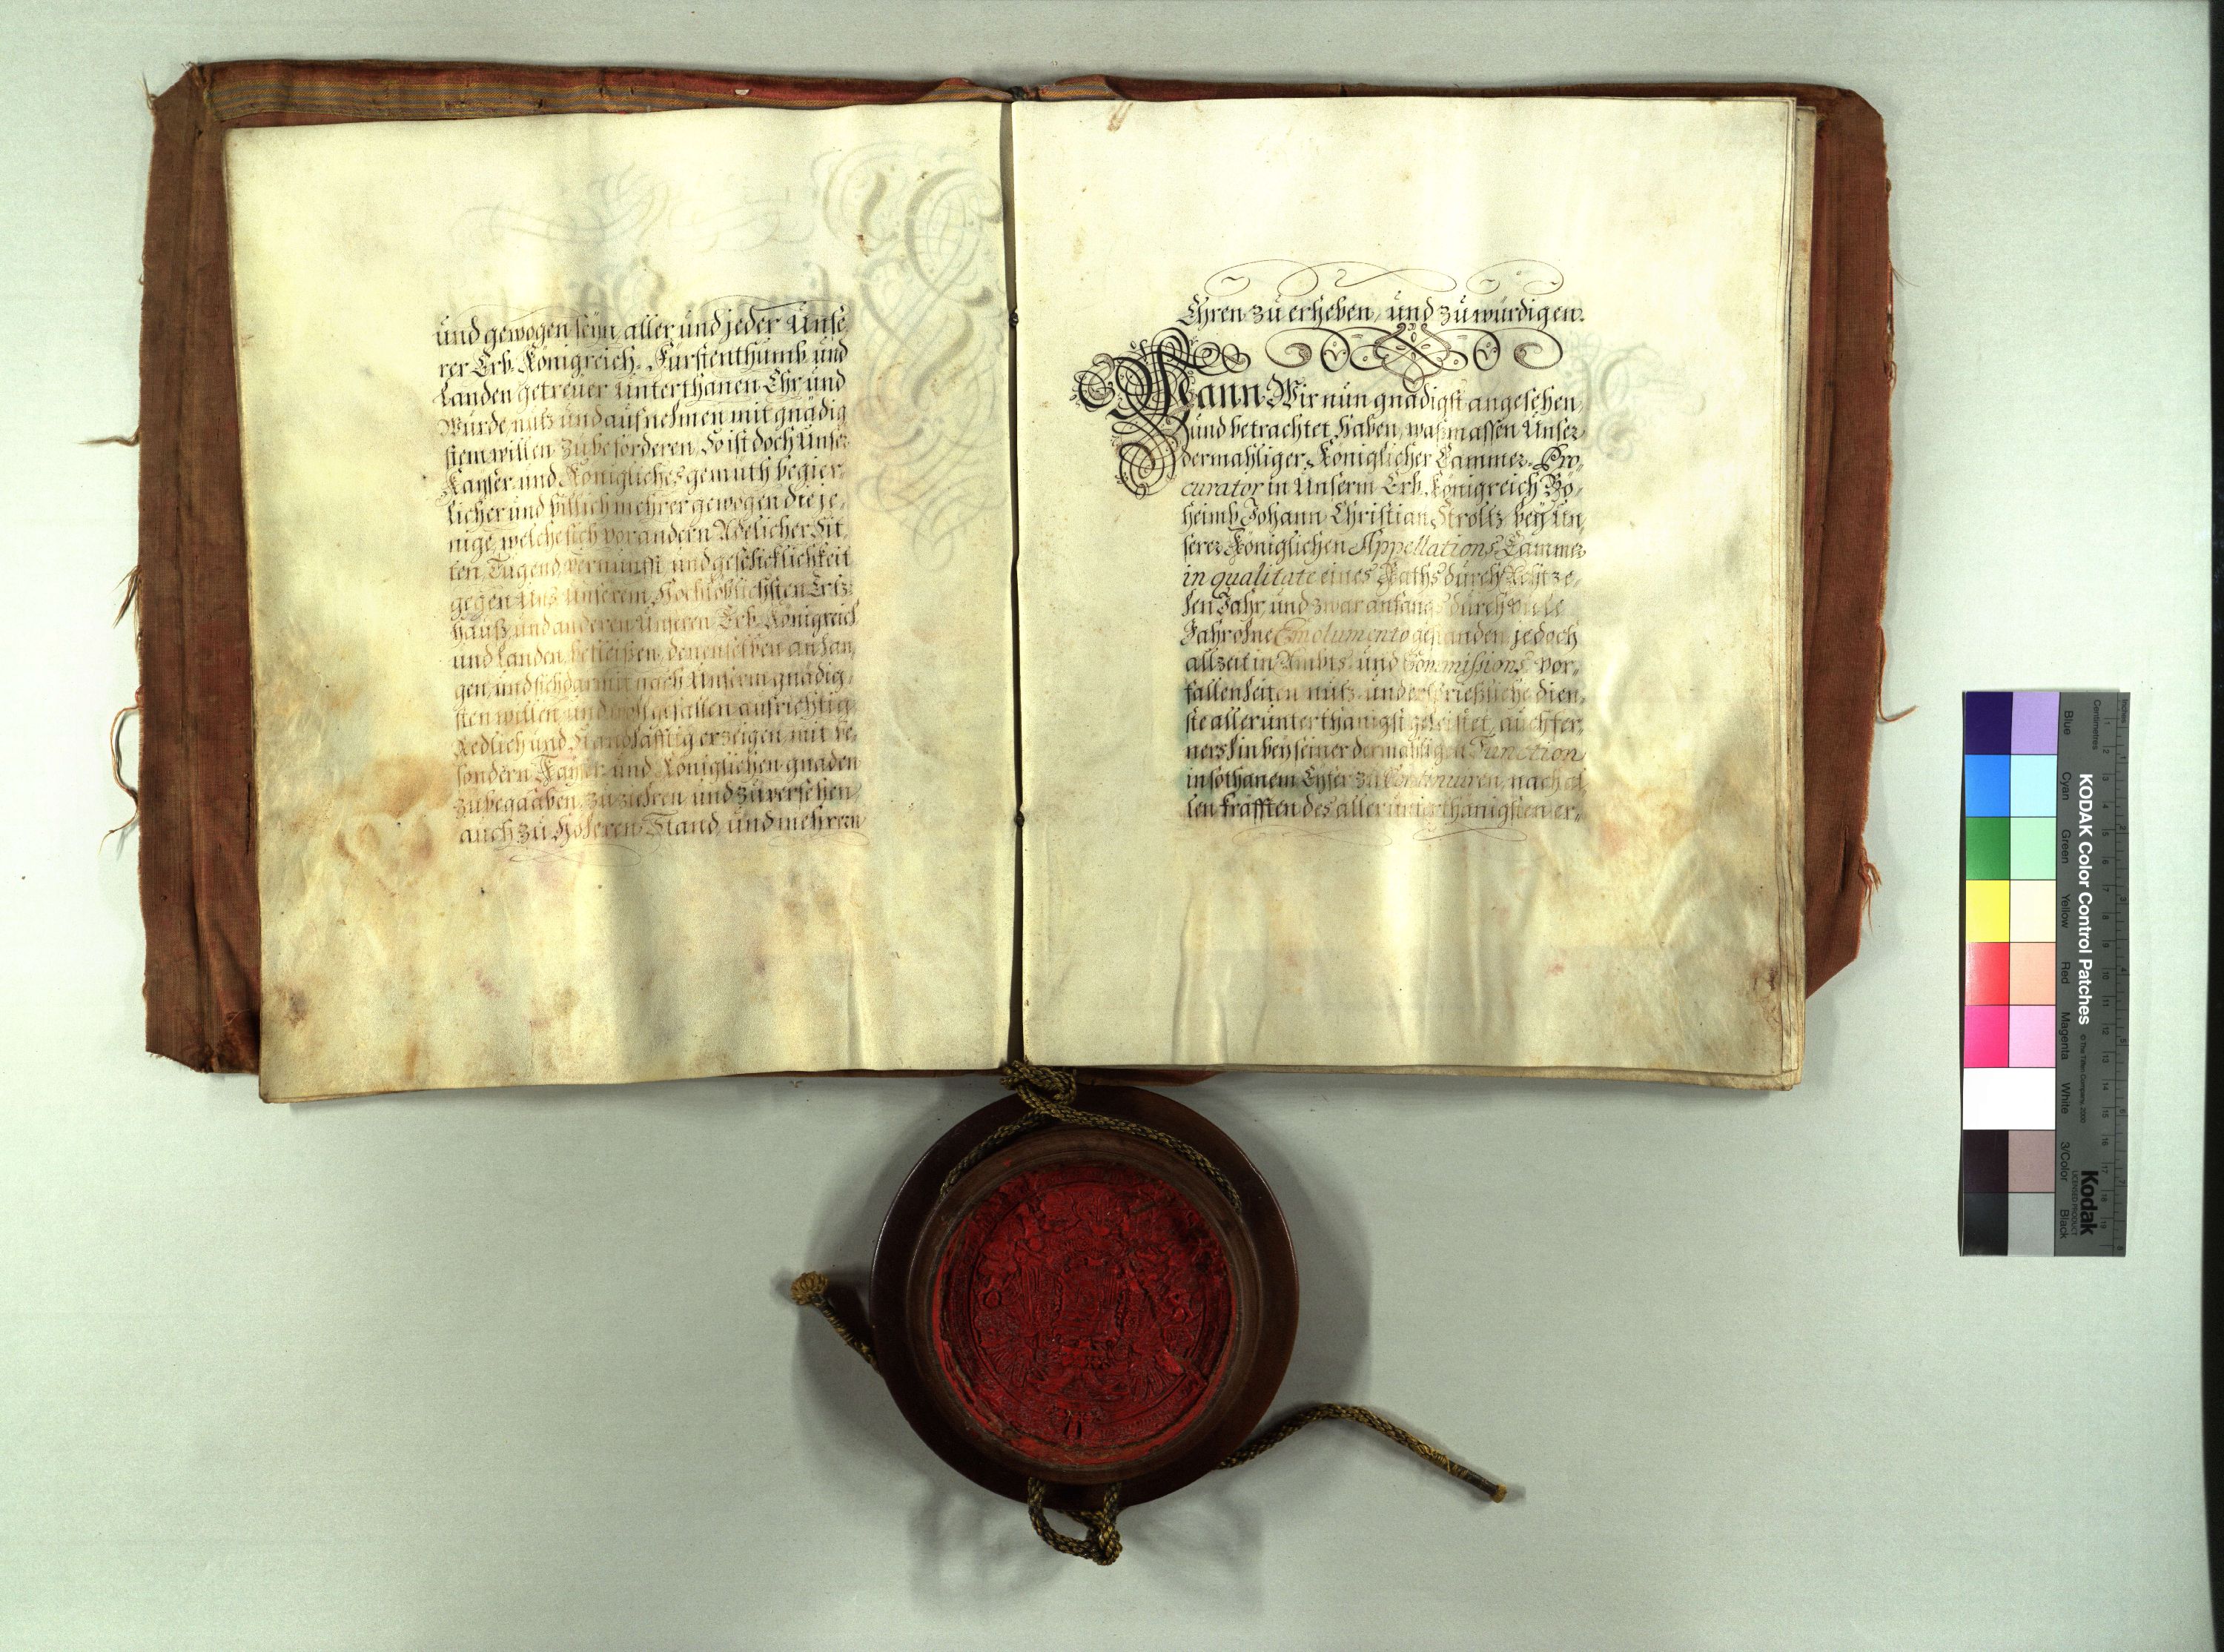 und gewogen seyn, aller und jeder Unse,
rer Erb-Königreich, Fürstenthumb und
Landen getreuer Unterthanen Ehr und
Würde, nutz und aufnehmen mit gnädig
stem willen zu beförderen, So ist doch Unser
Kayser und Königliches gemüth begier,
licher und billich mehrer gewogen die je,
nige, welche sich vor andern Adelicher Sit,
ten, Tugend, vernunfft und geschicklichkeit
gegen Uns Unserem Hochlöblichsten Ertz
hauß, und anderen Unseren Erb-Königreich
und Landen befleißen, denenselben anhan,
gen, und sich darmit nach Unserm gnädig,
sten willen und wohlgefallen aufrichtig
Redlich und Standhafftig erzeigen, mit be,
sondern Kayser und Königlichen gnaden
zu begaaben, zu ziehren und zu versehen,
auch zu Höheren Stand und mehrern
Ehren zu erheben, und zu würdigen.
Wann Wir nun gnädigst angesehen,
und betrachtet haben, waßmassen Unser
dermahliger Königlicher Cammer-Pro,
curator in Unserm Erb-Königreich Bo,
heimb Johann Christian Stroltz bey Un,
serer Königlichen Appellations-Cammer
in qualitate eines Raths durch Achtze,
hen Jahr, und zwar anfangs durch viele
Jahr ohne Emolumento gestanden, jedoch
allzeit in Ambts- und Commissions-vor,
fallenheiten nutz- und ersprießliche dien,
ste allerunterthänigst geleistet, auch fer,
ners hin bey seiner dermahligen Function
in sothanem Eyfer zu Continuiren, nach al
len kräfften des allerunterthänigsten er,
KODAK Color Control Patches
© The Tiffen Company, 2000
Kodak
LICENSED PRODUCT
Inches
Centimetres
Blue
Cyan
Green
Yellow
Red
Magenta
White
3/Color
Black